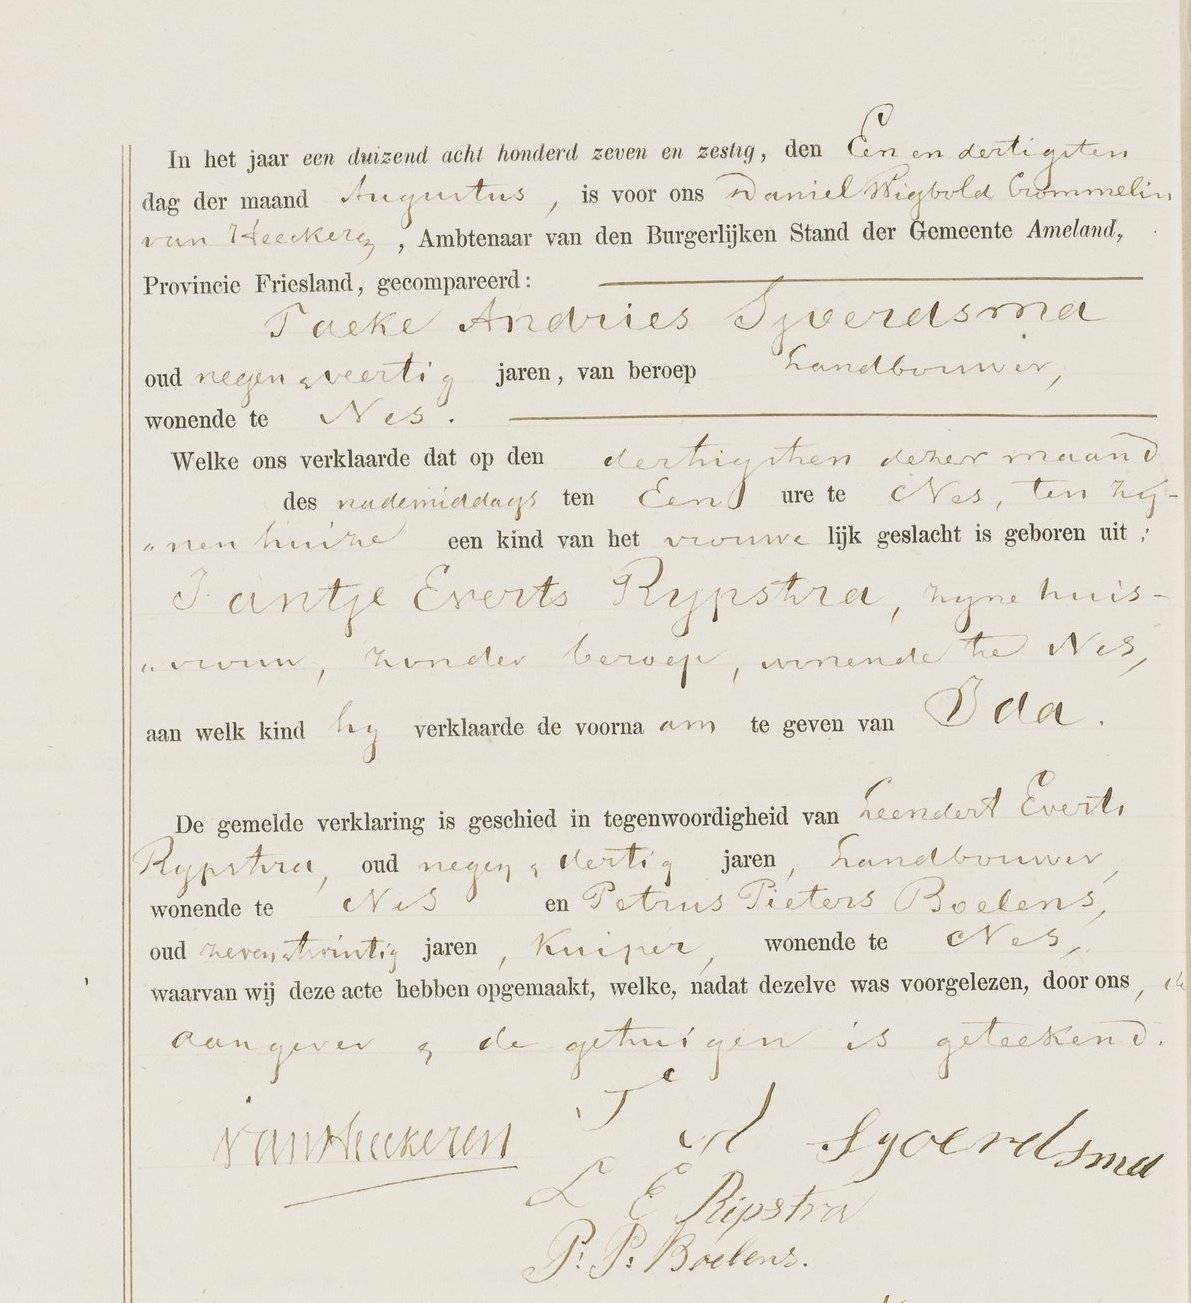 In het jaar een duizend acht honderd zeven en zestig, den Een en dertigsten
dag der maand Augustus, is voor ons Daniel Wigbold Crommelin
van Heeckeren, Ambtenaar van den Burgerlijken Stand der Gemeente Ameland,
Provincie Friesland, gecompareerd:
Taeke Andries Sjoerdsma
oud negen & veertig jaren, van beroep Landbouwer,
wonende te Nes.
Welke ons verklaarde dat op den dertigsten dezer maand
des nademiddags ten Een ure te Nes, ten zij-
"nen huize een kind van het vrouwelijk geslacht is geboren uit:
Jantje Everts Rypstra, zyne huis-
"vrouw, zonder beroep, wonende te Nes,
aan welk kind hy verklaarde de voornaam te geven van Ida.
De gemelde verklaring is geschied in tegenwoordigheid van Leendert Everts
Rypstra, oud negen & dertig jaren, Landbouwer,
wonende te Nes en Petrus Pieters Boelens,
oud zeven & twintig jaren, Kuiper, wonende te Nes,
waarvan wij deze acte hebben opgemaakt, welke, nadat dezelve was voorgelezen, door ons, de
aangever & de getuigen is geteekend.
van Heeckeren T A Sjoerdsma
L E Ripstra
P. P. Boelens.